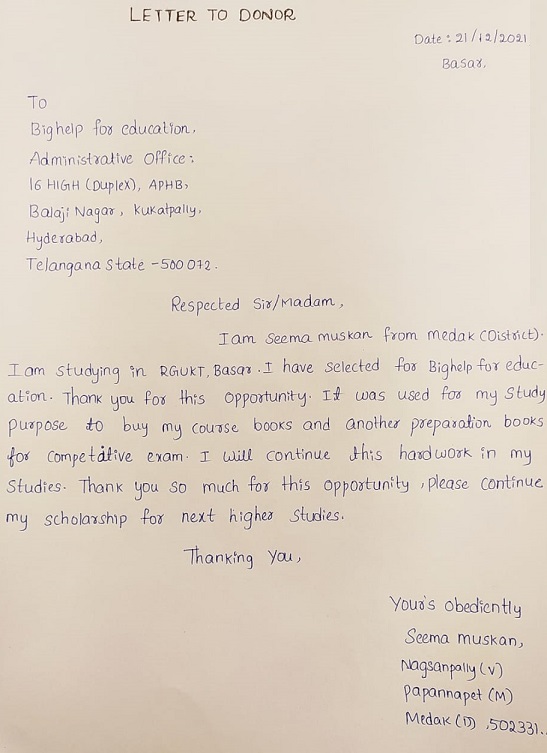 LETTER TO DONOR
Date : 21/12/2021
Basar.
To
Bighelp for education,
Administrative Office :
16 HIGH (Duplex), APHB,
Balaji Nagar, Kukatpally,
Hyderabad,
Telangana State - 500 072.
Respected Sir/Madam,
I am Seema muskan from medak (District).
I am studying in RGUKT, Basar. I have selected for Bighelp for educ-
ation. Thank you for this opportunity. It was used for my Study
purpose to buy my course books and another preparation books
for competative exam. I will continue this hardwork in my
Studies. Thank you so much for this opportunity, please continue
my scholarship for next higher studies.
Thanking You,
Your's obediently
Seema muskan,
Nagsanpally (V)
Papannapet (M)
Medak (D), 502331.